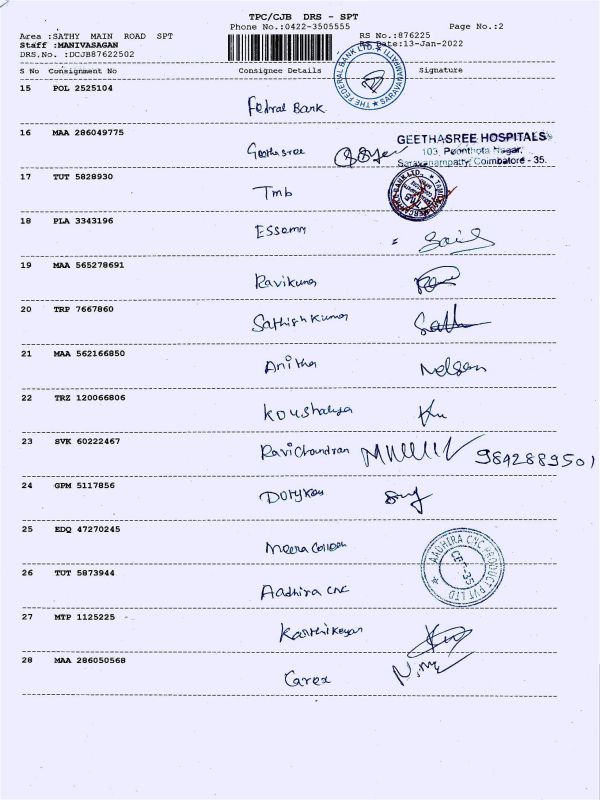 TPC/CJB DRS - SPT
Phone No.:0422-3505555 Page No.:2
Area :SATHY MAIN ROAD SPT RS No.:876225
Staff :MANIVASAGAN RS Date:13-Jan-2022
DRS.No. :DCJB87622502
S No Consignment No Consignee Details Signature
THE FEDERAL BANK LTD. SARAVANAMPATTI
15 POL 2525104
Fedral Bank
16 MAA 286049775
Geethasree
GEETHASREE HOSPITALS
103, Poonthota Nagar,
Saravanampatty, Coimbatore - 35.
17 TUT 5828930
Tmb
BANK LTD.
18 PLA 3343196
Essamy
19 MAA 565278691
Ravikumar
20 TRP 7667860
Sathishkumar
21 MAA 562166850
Anitha Nelson
22 TRZ 120066806
Koushalya
23 SVK 60222467
Ravichandran 9842889501
24 GPM 5117856
25 EDQ 47270245
Meera
26 TUT 5873944
Aadhira cnc
AADHIRA CNC PRODUCT PVT LTD
CBE-35
27 MTP 1125225
Karthikeyan
28 MAA 286050568
Carex